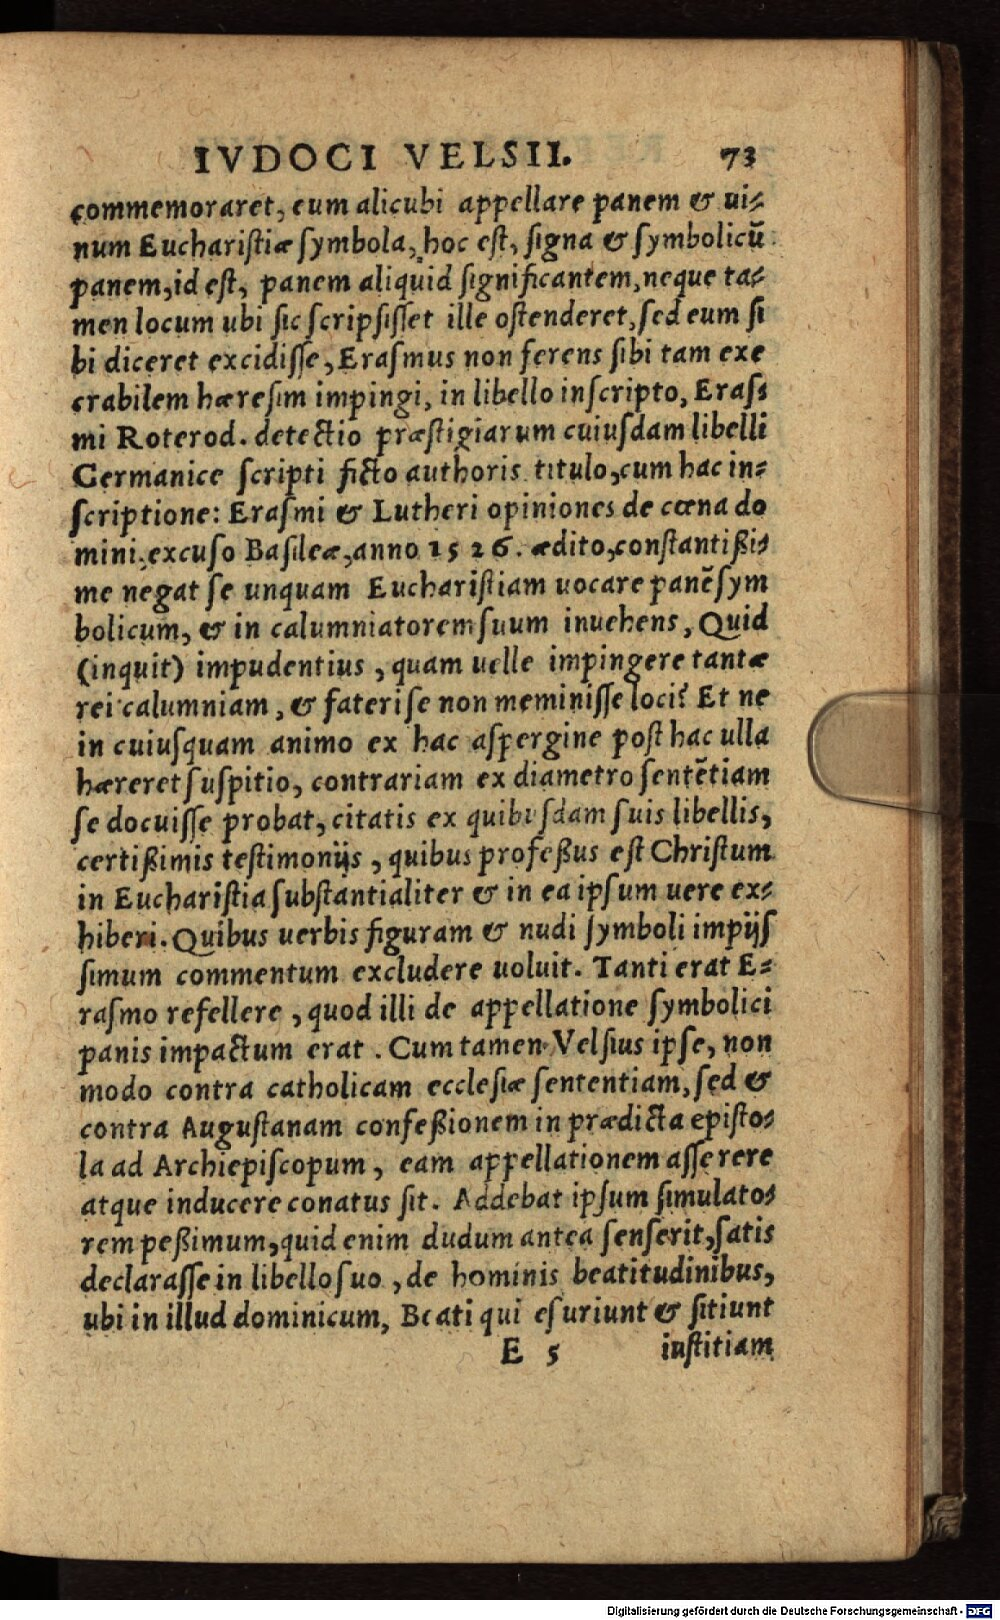 IVDOCI VELSII. 73
commemoraret, eum alicubi appellare panem & ui-
num Euchariſtiæ ſymbola, hoc eſt, ſigna & ſymbolicū
panem, id eſt, panem aliquid ſignificantem, neque ta-
men locum ubi ſic ſcripſiſſet ille oſtenderet, ſed eum ſi
bi diceret excidiſſe, Eraſmus non ferens ſibi tam exe
crabilem hæreſim impingi, in libello inſcripto, Eraſ-
mi Roterod. detectio præſtigiarum cuiuſdam libelli
Germanice ſcripti ficto authoris titulo, cum hac in-
ſcriptione: Eraſmi & Lutheri opiniones de cœna do
mini, excuſo Baſileæ, anno 1526. ædito, conſtantißi-
me negat ſe unquam Euchariſtiam uocare panē ſym
bolicum, & in calumniatorem ſuum inuehens, Quid
(inquit) impudentius, quam uelle impingere tantæ
rei calumniam, & fateri ſe non meminiſſe loci? Et ne
in cuiuſquam animo ex hac aſpergine poſt hac ulla
hæreret ſuſpitio, contrariam ex diametro ſentētiam
ſe docuiſſe probat, citatis ex quibuſdam ſuis libellis,
certißimis teſtimonijs, quibus profeßus eſt Chriſtum
in Euchariſtia ſubſtantialiter & in ea ipſum uere ex-
hiberi. Quibus uerbis figuram & nudi ſymboli impijſ
ſimum commentum excludere uoluit. Tanti erat E-
raſmo refellere, quod illi de appellatione ſymbolici
panis impactum erat. Cum tamen Velſius ipſe, non
modo contra catholicam eccleſiæ ſententiam, ſed &
contra Auguſtanam confeßionem in prædicta epiſto-
la ad Archiepiſcopum, eam appellationem aſſerere
atque inducere conatus ſit. Addebat ipſum ſimulato-
rem peßimum, quid enim dudum antea ſenſerit, ſatis
declaraſſe in libello ſuo, de hominis beatitudinibus,
ubi in illud dominicum, Beati qui eſuriunt & ſitiunt
E 5 iuſtitiam
Digitalisierung gefördert durch die Deutsche Forschungsgemeinschaft - DFG